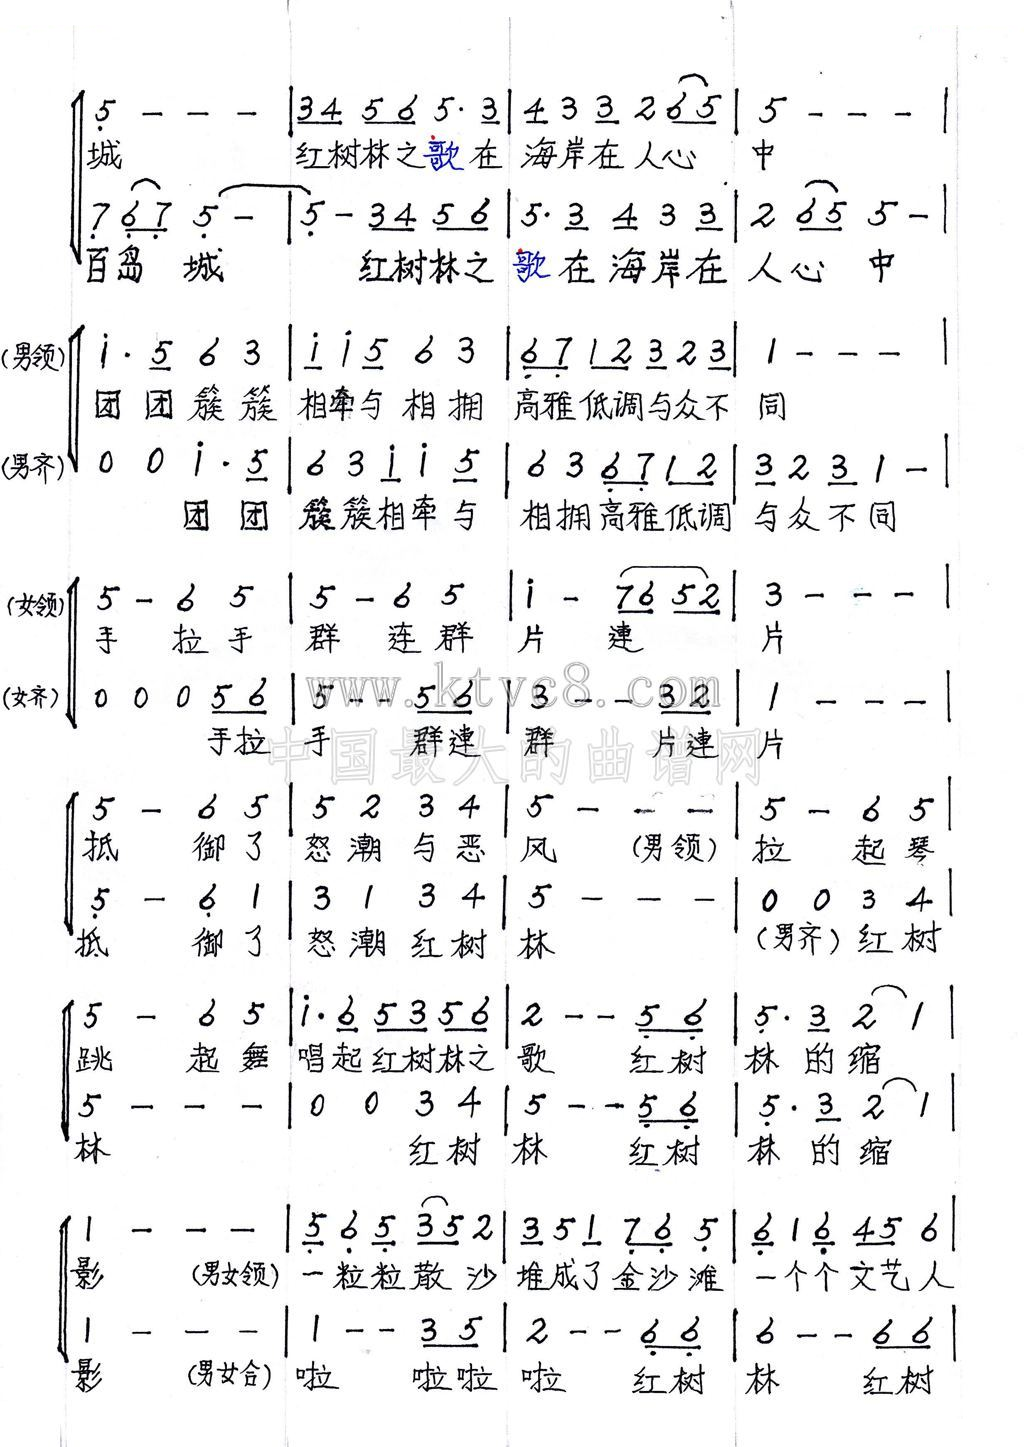 5 - - - | 34 56 5· 3 | 4 3 3 2 65 | 5 - - - |
城 红树林之歌在 海岸在人心 中
7 67 5 - | 5 - 34 56 | 5· 3 4 3 3 | 2 65 5 - |
百岛 城 红树林之 歌在海岸在 人心 中
(男领) i· 5 6 3 | i i5 6 3 | 67 12 3 2 3 | 1 - - - |
团团簇簇 相牵与相拥 高雅低调与众不 同
(男齐) 0 0 i· 5 | 6 3 i i 5 | 6 3 67 12 | 3 2 3 1 - |
团团 簇簇相牵与 相拥高雅低调 与众不同
(女领) 5 - 6 5 | 5 - 6 5 | i - 76 52 | 3 - - - |
手 拉手 群 连群 片 連 片
(女齐) 0 0 0 56 | 5 - - 56 | 3 - - 32 | 1 - - - |
www.ktvc8.com
手拉 手 群連 群 片連 片
中国最大的曲谱网
5 - 6 5 | 5 2 3 4 | 5 - - - | 5 - 6 5 |
抵 御了 怒潮与恶 风 (男领) 拉 起琴
5 - 6 1 | 3 1 3 4 | 5 - - - | 0 0 3 4 |
抵 御了 怒潮红树 林 (男齐) 红树
5 - 6 5 | i· 6 53 56 | 2 - - 56 | 5· 3 2 1 |
跳 起舞 唱起红树林之 歌 红树 林的缩
5 - - - | 0 0 3 4 | 5 - - 56 | 5· 3 2 1 |
林 红树 林 红树 林的缩
1 - - - | 5 6 5 35 2 | 3 5 1 7 6 5 | 6 1 6 45 6 |
影 (男女领) 一粒粒散沙 堆成了金沙滩 一个个文艺人
1 - - - | 1 - - 35 | 2 - - 66 | 6 - - 66 |
影 (男女合) 啦 啦啦 啦 红树 林 红树